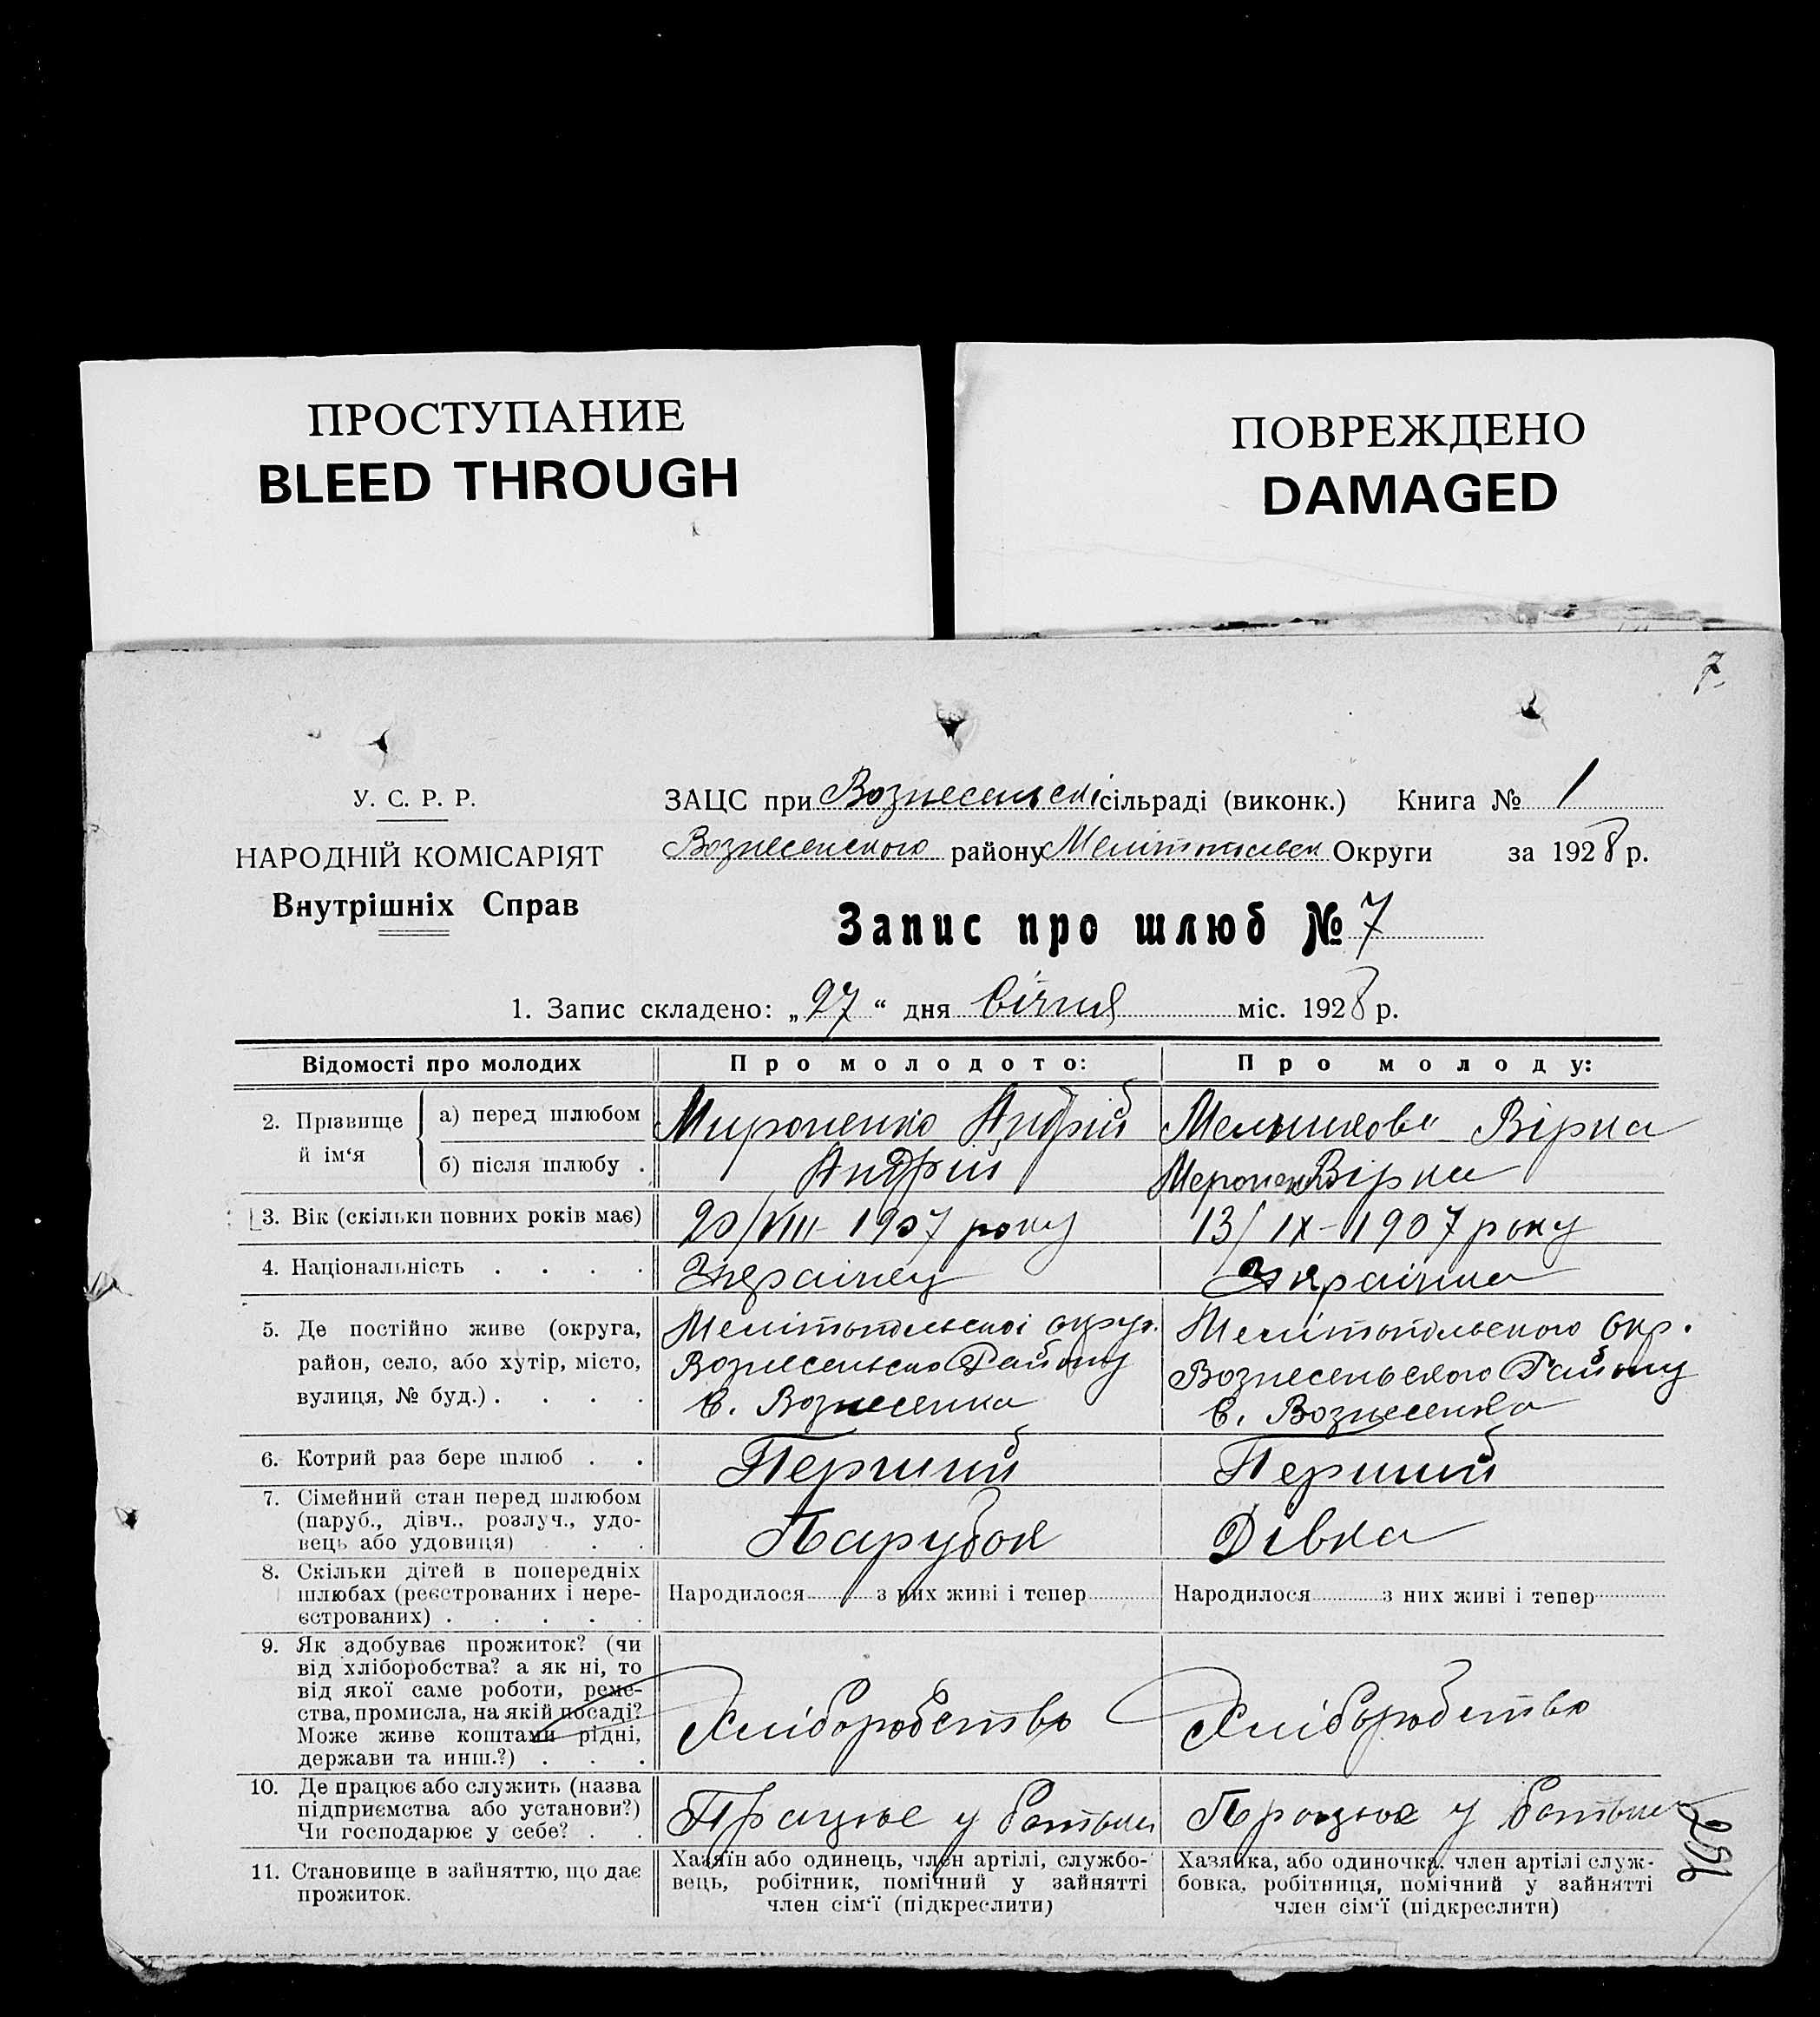 ПРОСТУПАНИЕ
BLEED THROUGH
ПОВРЕЖДЕНО
DAMAGED
7.
У. С. Р. Р.
НАРОДНІЙ КОМІСАРІЯТ
Внутрішніх Справ
ЗАЦС при Вознесенскі сільраді (виконк.) Книга № 1
Вознесенского району Мелітопольск Округи за 1928 р.
Запис про шлюб № 7
1. Запис складено: „27“ дня Січня міс. 1928 р.
Відомості про молодих
Про молодото:
Про молоду:
2. Прізвище й ім‘я
а) перед шлюбом
Мироненко Андрій
Мельникова Вірка
б) після шлюбу .
Андрій
Меронен Вірка
3. Вік (скільки повних років має)
20/VIII 1907 року
13/IX-1907 року
4. Національність . . . .
Українец
Українка
5. Де постійно живе (округа,
район, село, або хутір, місто,
вулиця, № буд.) . . . .
Мелітопольскоі округ.
Вознесенско Району
С. Вознесенка
Мелітопольского Окр.
Вознесеньского Району
С. Вознесенка
6. Котрий раз бере шлюб . .
Перший
Перший
7. Сімейний стан перед шлюбом
(паруб., дівч., розлуч., удо-
вець або удовиця) . . .
Парубок
Дівка
8. Скільки дітей в попередніх
шлюбах (реєстрованих і нере-
єстрованих) . . . . .
Народилося з них живі і тепер
Народилося з них живі і тепер
9. Як здобуває прожиток? (чи
від хліборобства? а як ні, то
від якої саме роботи, реме-
ства, промисла, на якій посаді?
Може живе коштами рідні,
держави та инш.?) . . .
Хліборобство
Хліборобство
10. Де працює або служить (назва
підприємства або установи?)
Чи господарює у себе? . .
Працює у батьки
Працює у батьки
11. Становище в зайняттю, що дає
прожиток.
Хазяїн або одинець, член артілі, службо-
вець, робітник, помічний у зайнятті
член сім‘ї (підкреслити)
Хазяйка, або одиночка, член артілі служ-
бовка, робітниця, помічний у зайнятті
член сім‘ї (підкреслити)